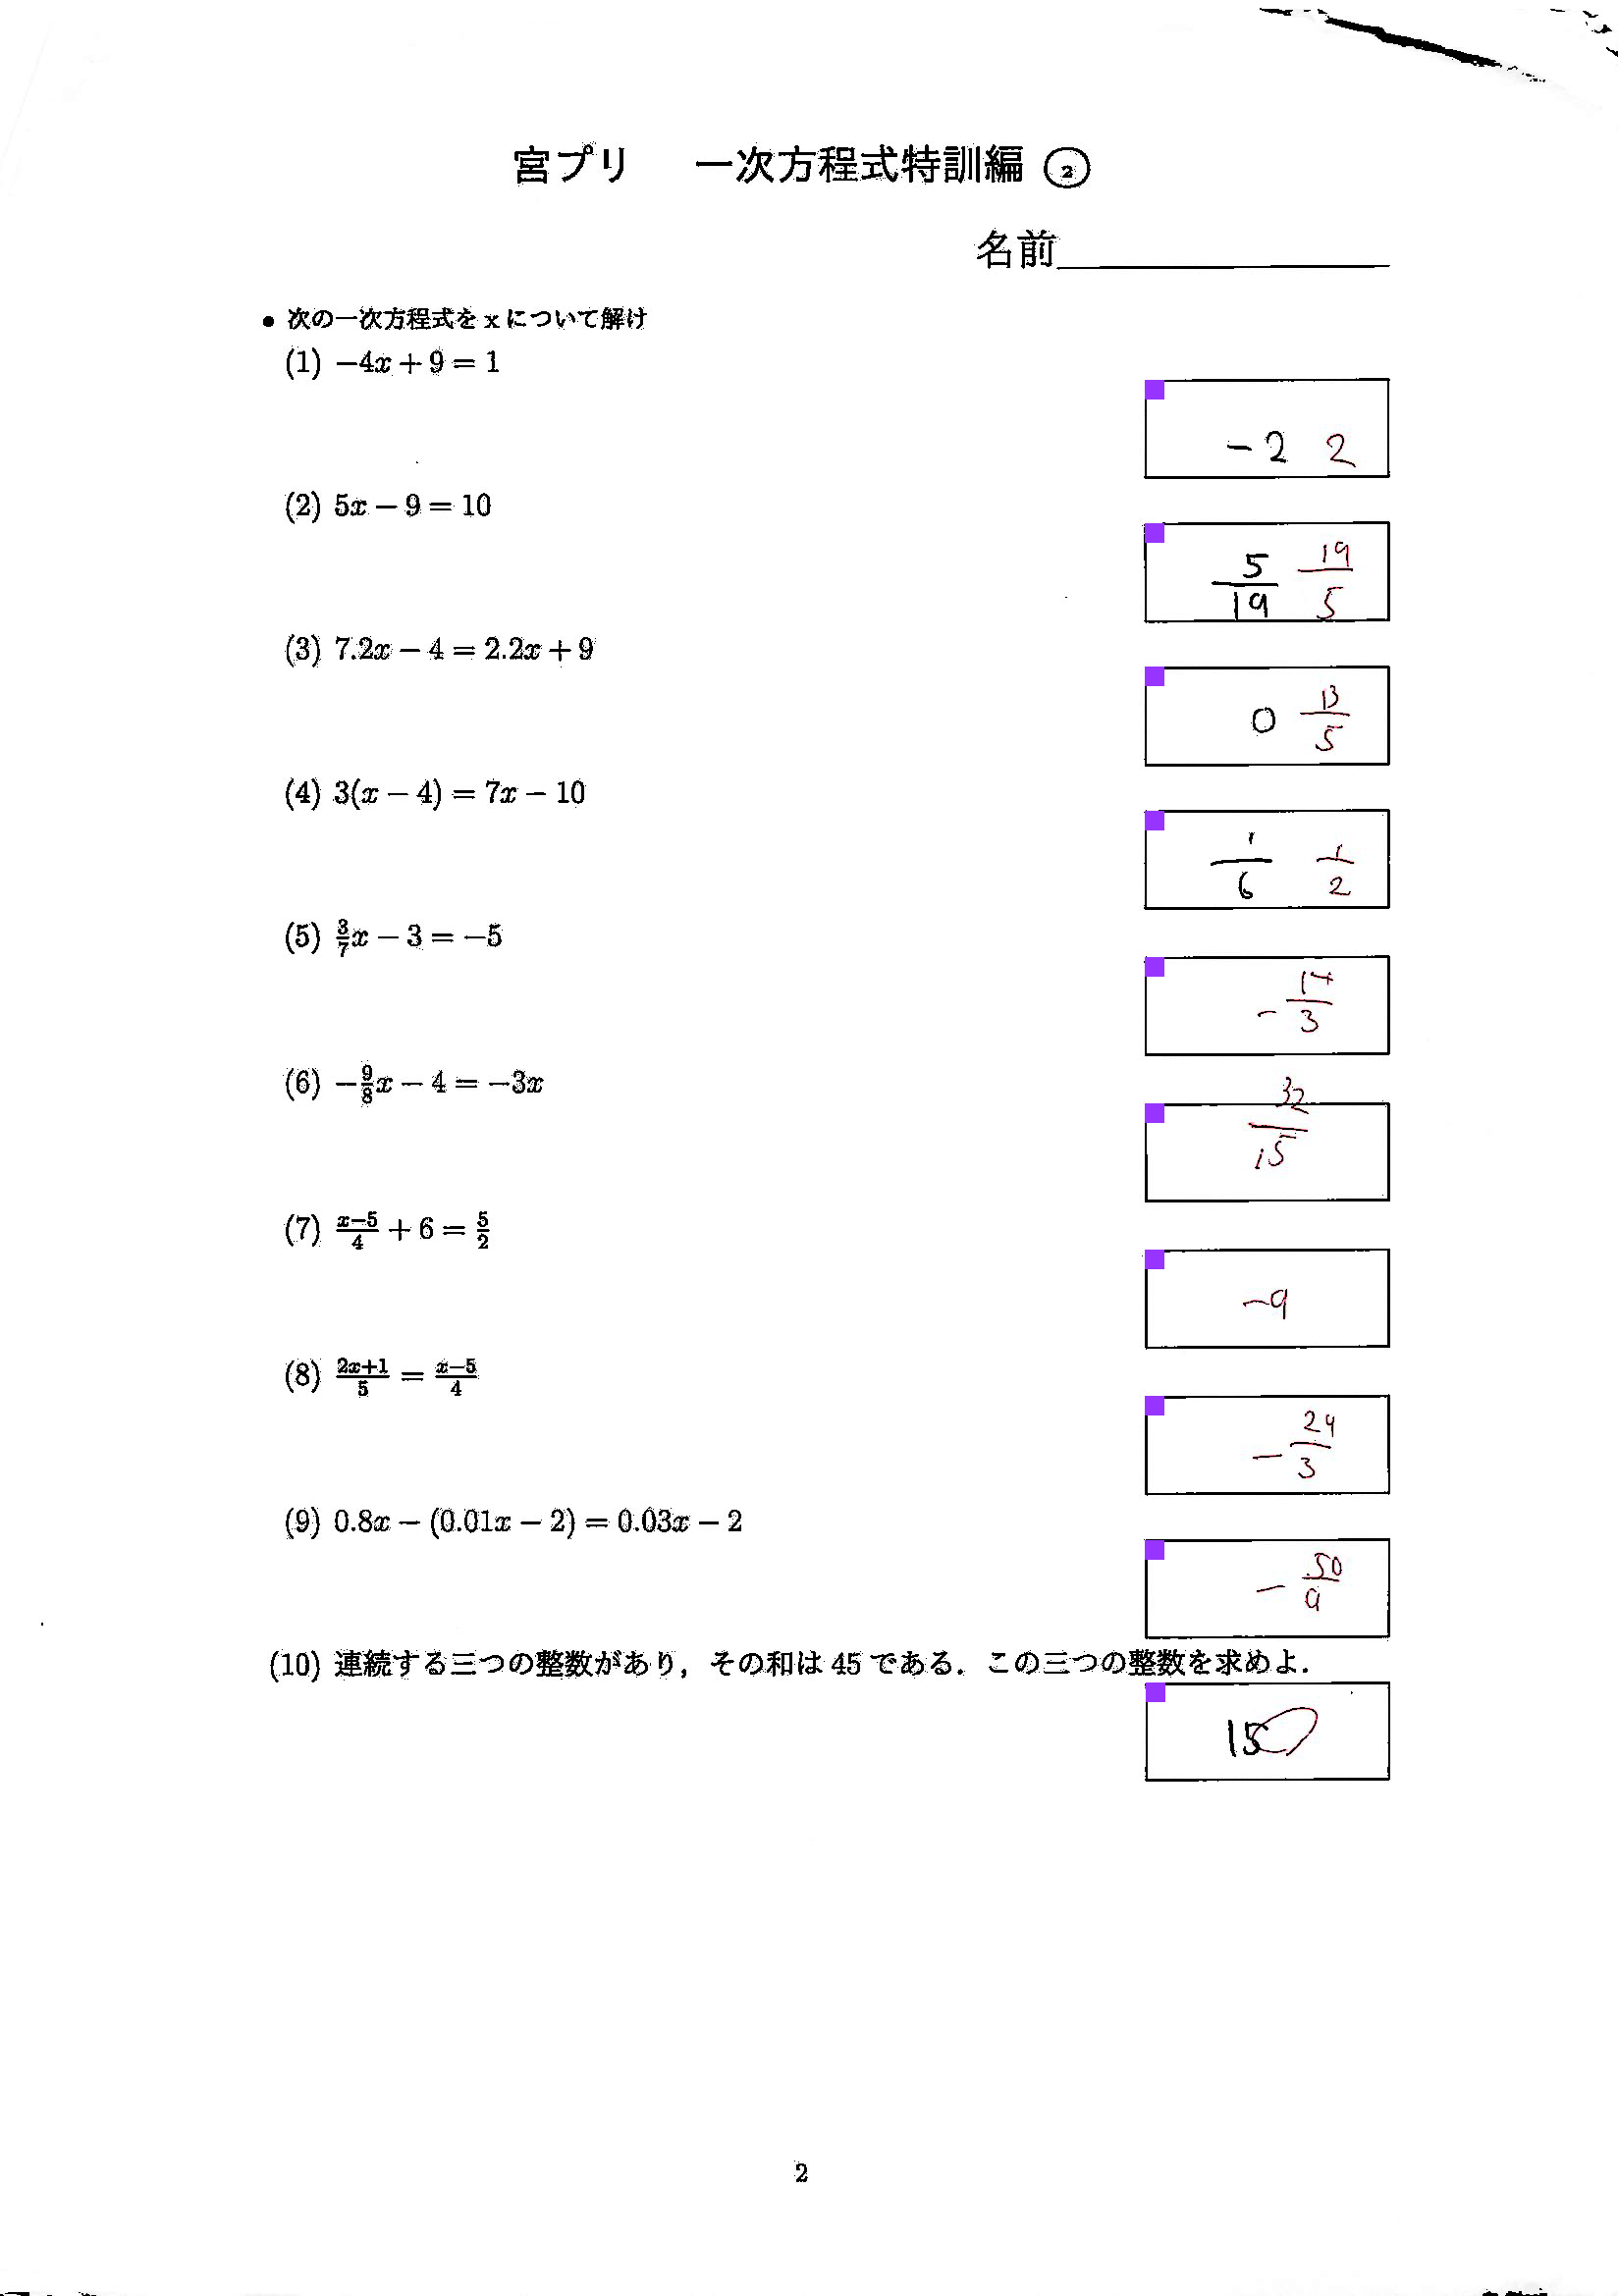 宮プリ 一次方程式特訓編 ②
名前
• 次の一次方程式を x について解け
(1) −4x + 9 = 1
−2 2
(2) 5x − 9 = 10
5/19 19/5
(3) 7.2x − 4 = 2.2x + 9
0 13/5
(4) 3(x − 4) = 7x − 10
1/6 1/2
(5) 3/7x − 3 = −5
−14/3
(6) −9/8x − 4 = −3x
32/15
(7) x−5/4 + 6 = 5/2
−9
(8) 2x+1/5 = x−5/4
−29/3
(9) 0.8x − (0.01x − 2) = 0.03x − 2
−50/9
(10) 連続する三つの整数があり，その和は 45 である．この三つの整数を求めよ．
15
2